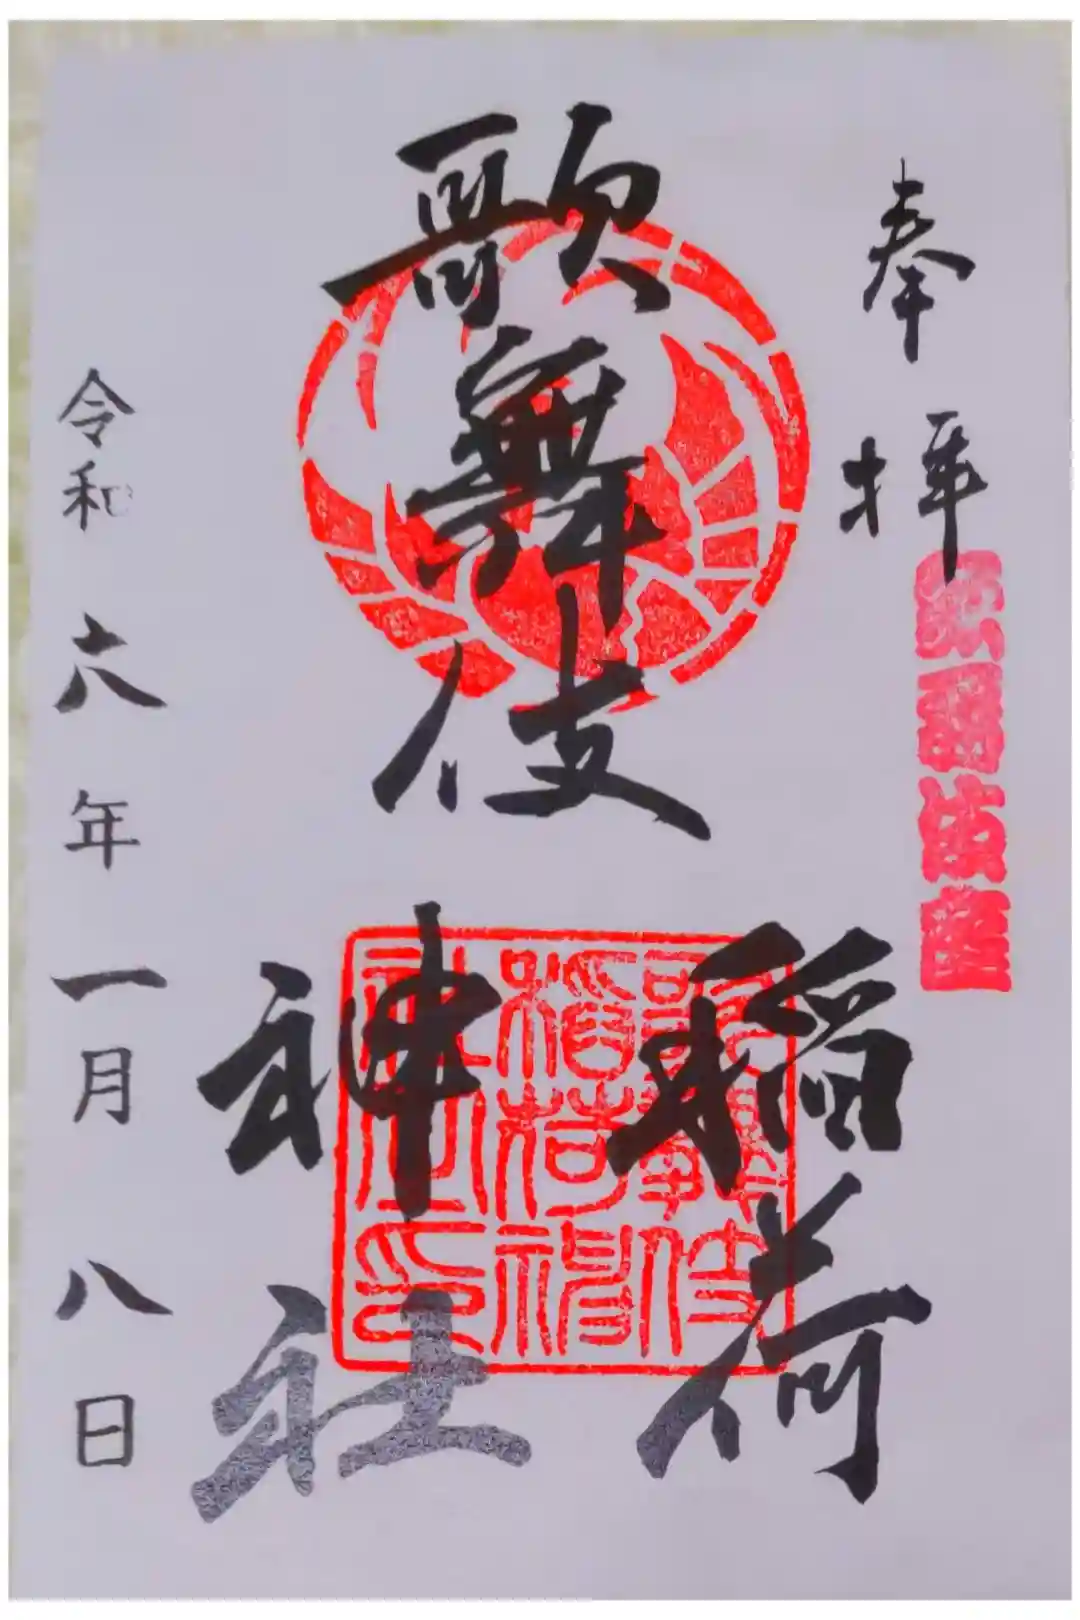 奉拝
歌舞伎座
歌舞伎
稲荷
神社
歌舞伎
稲荷神
社之印
令和六年一月八日